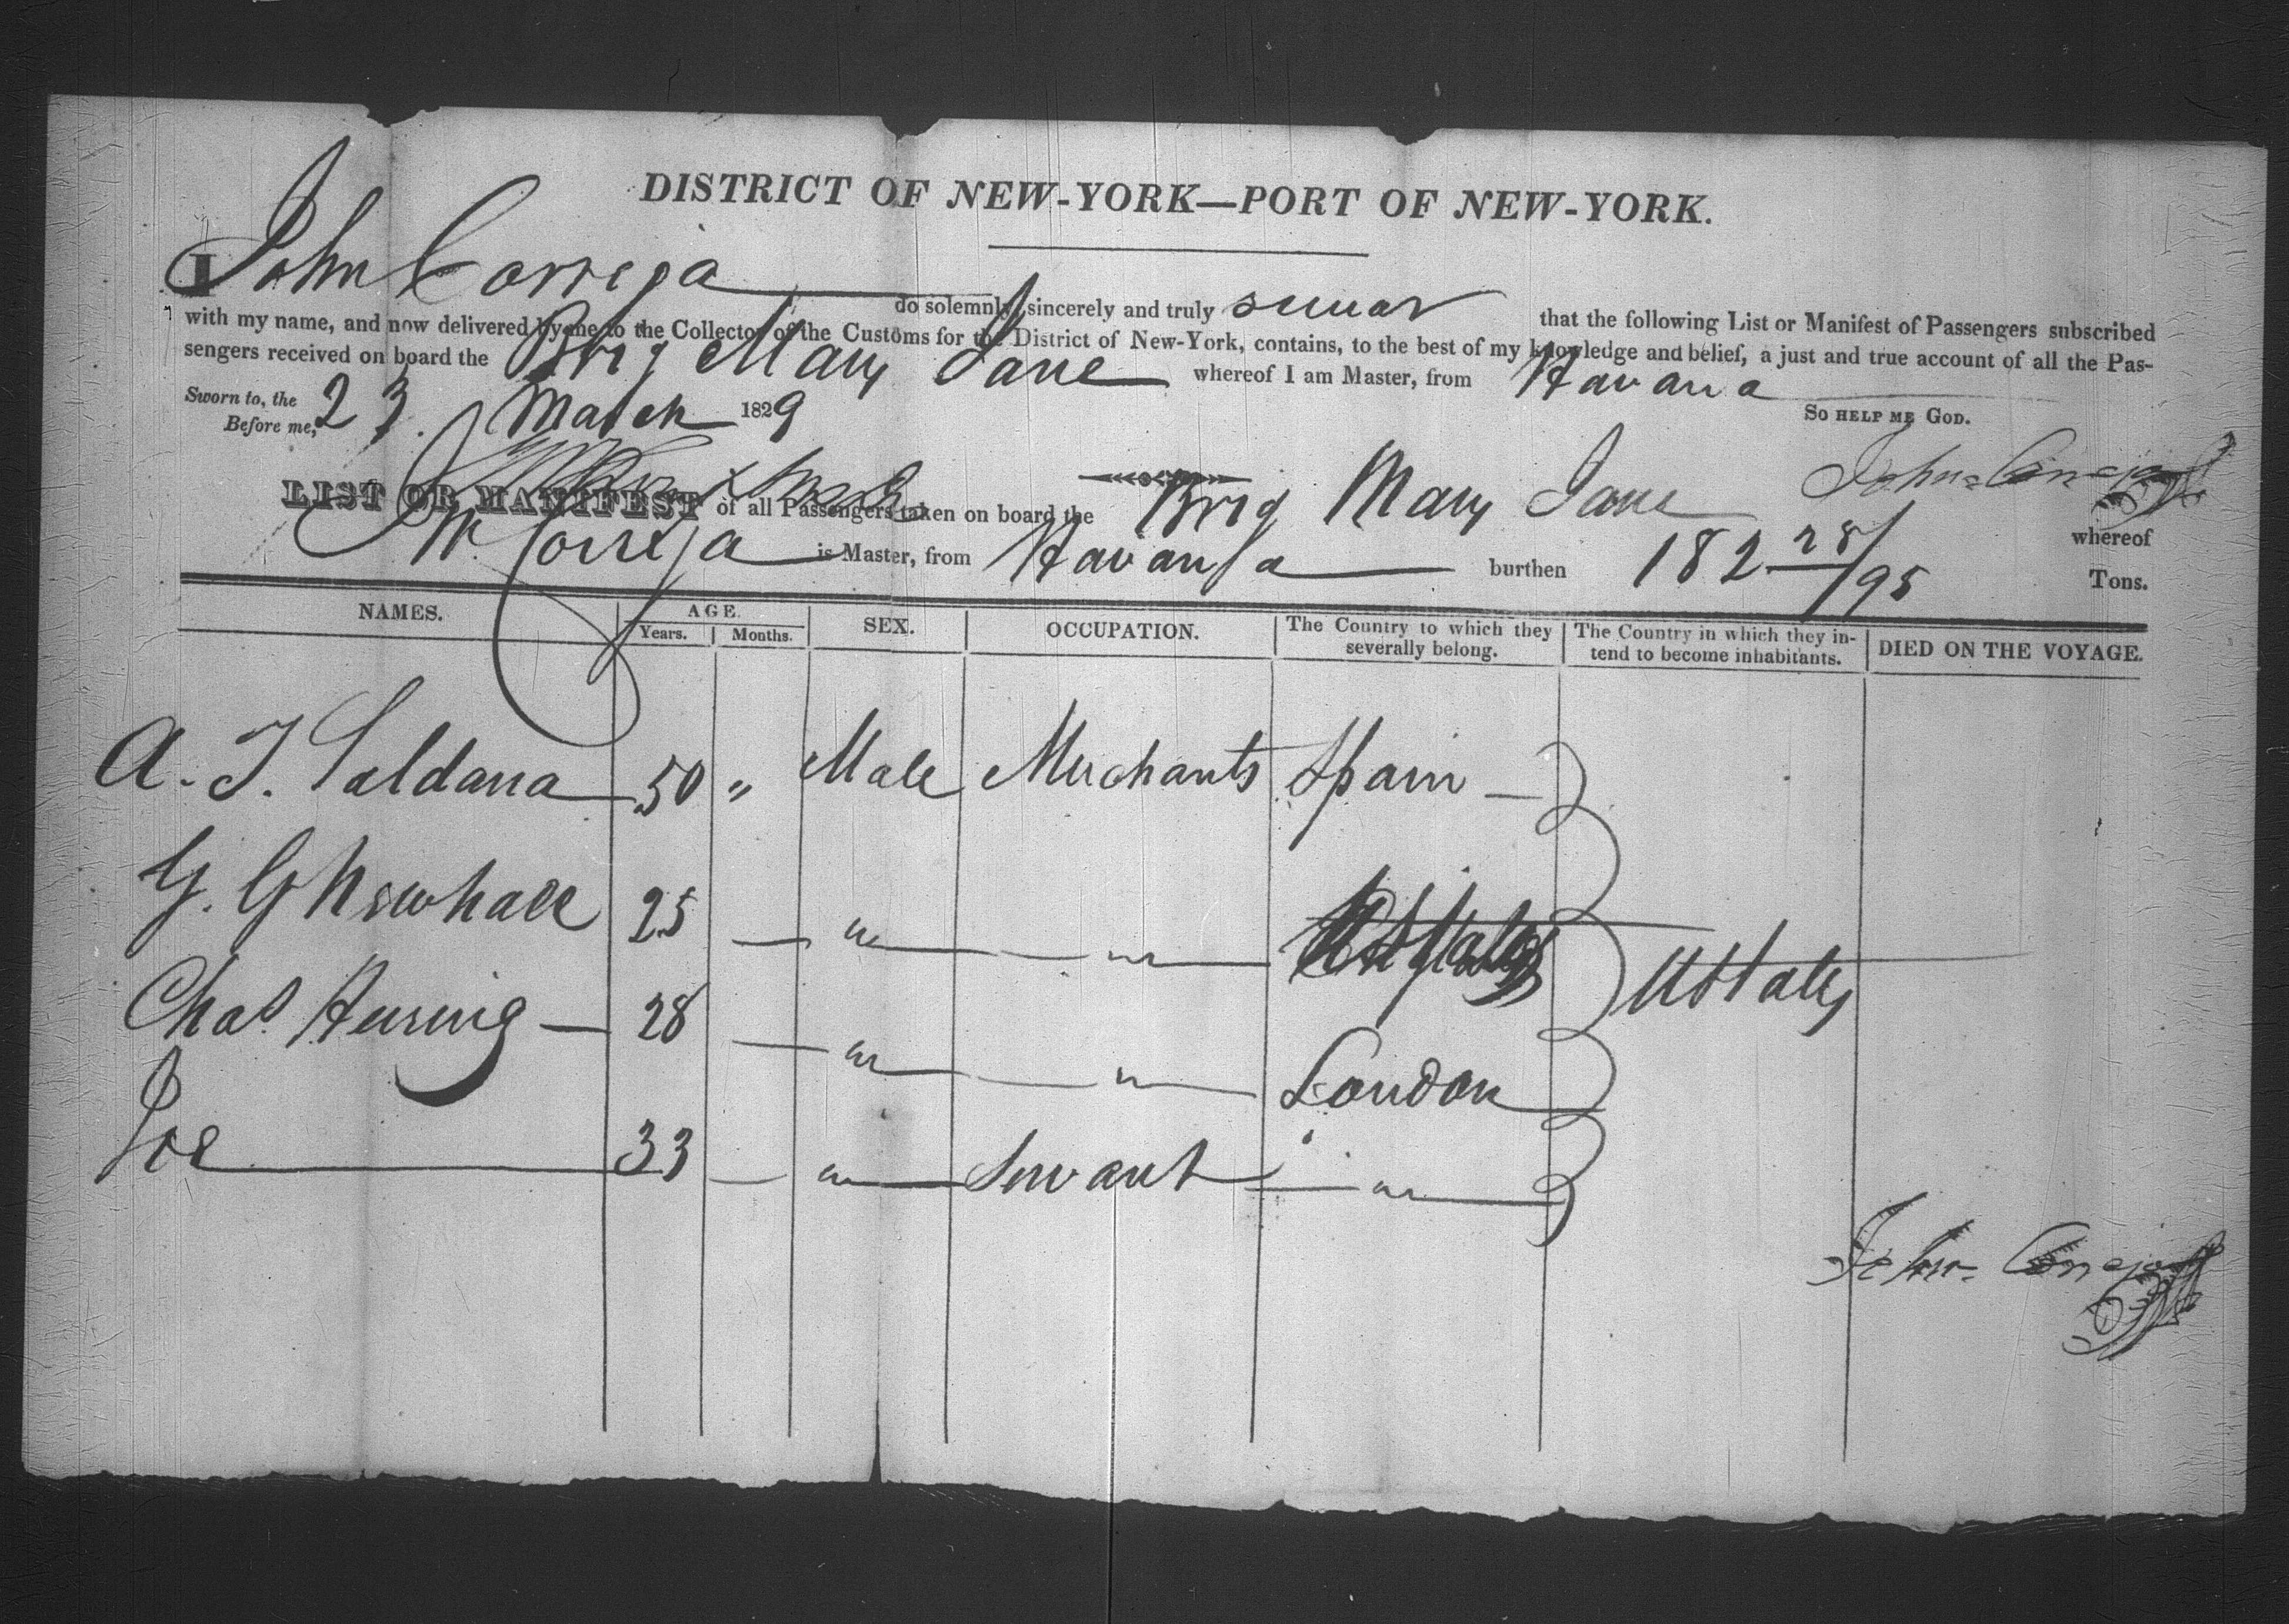 DISTRICT OF NEW-YORK—PORT OF NEW-YORK.
I John Correja do solemnly, sincerely and truly swear that the following List or Manifest of Passengers subscribed
with my name, and now delivered by me to the Collector of the Customs for the District of New-York, contains, to the best of my knowledge and belief, a just and true account of all the Pas-
sengers received on board the Brig Mary Jane whereof I am Master, from Havana
Sworn to, the 23 March 1829
So HELP ME GOD.
Before me,
John Correja
LIST OR MANIFEST of all Passengers taken on board the Brig Mary Jane whereof
Correja is Master, from Havana burthen 182 28/95 Tons.
NAMES. AGE. SEX. OCCUPATION. The Country to which they severally belong. The Country in which they in-
tend to become inhabitants. DIED ON THE VOYAGE.
Years. Months.
A. J. Saldana 50 " Male Merchants Spain
G. G Newhall 25 — " — " — U States
U States
Chas. Hersing — 28 — " — " — London
Joe 33 — " — Servant — " —
John Correja